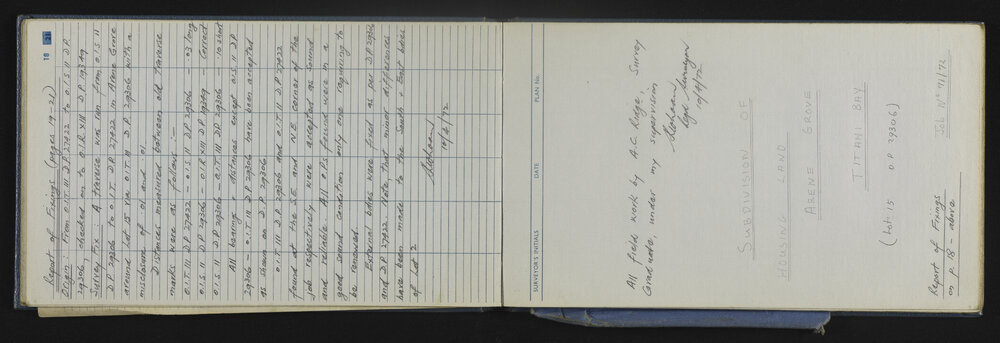 18
21
Report of Fixings (pages 19-21)
Origin: From O.I.T. III D.P. 27422 to O.I.S. II D.P.
29306, checked on to O.I.R. XIII D.P. 19349
Survey Fix: A traverse was ran from O.I.S. II
D.P. 29306 to O.I.T. D.P. 27422 in Arene Grove
around Lot 15 via O.I.T. III D.P. 29306 with a
misclosure of .01 and .01
Distances measured between old traverse
marks were as follows :-
O.I.T. III D.P. 27422 - O.I.S. II D.P. 29306 - .03 long
O.I.S. II D.P. 29306 - O.I.R. XIII D.P. 19349 - Correct
O.I.S. II D.P. 29306 - O.I.T. III D.P. 29306 - .10 short
All bearing & distances except O.I.S. II D.P.
29306 - O.I.T. III D.P. 29306 have been accepted
as shown on D.P. 29306
O.I.T. III D.P. 29306 and O.I.T. III D.P. 27422
found at the S.E and N.E. corner of the
job respectively were accepted as sound
and reliable. All O.I.R.s found were in a
good sound condition only one requiring to
be renewed
External bdies were fixed as per D.P. 29306
and D.P. 27422. Note that minor differences
have been made to the South & East bdies
of Lot 2
10/4/72
SURVEYOR'S INITIALS
DATE
PLAN No.
All field work by A.C. Ridge, Survey
Graduate, under my supervision
Regd Surveyor
10/4/72
SUBDIVISION OF
HOUSING LAND
ARENE GROVE
TITAHI BAY
(Lot 15 D.P. 29306)
Job No 71/72
Report of Fixings
on P. 18 - above